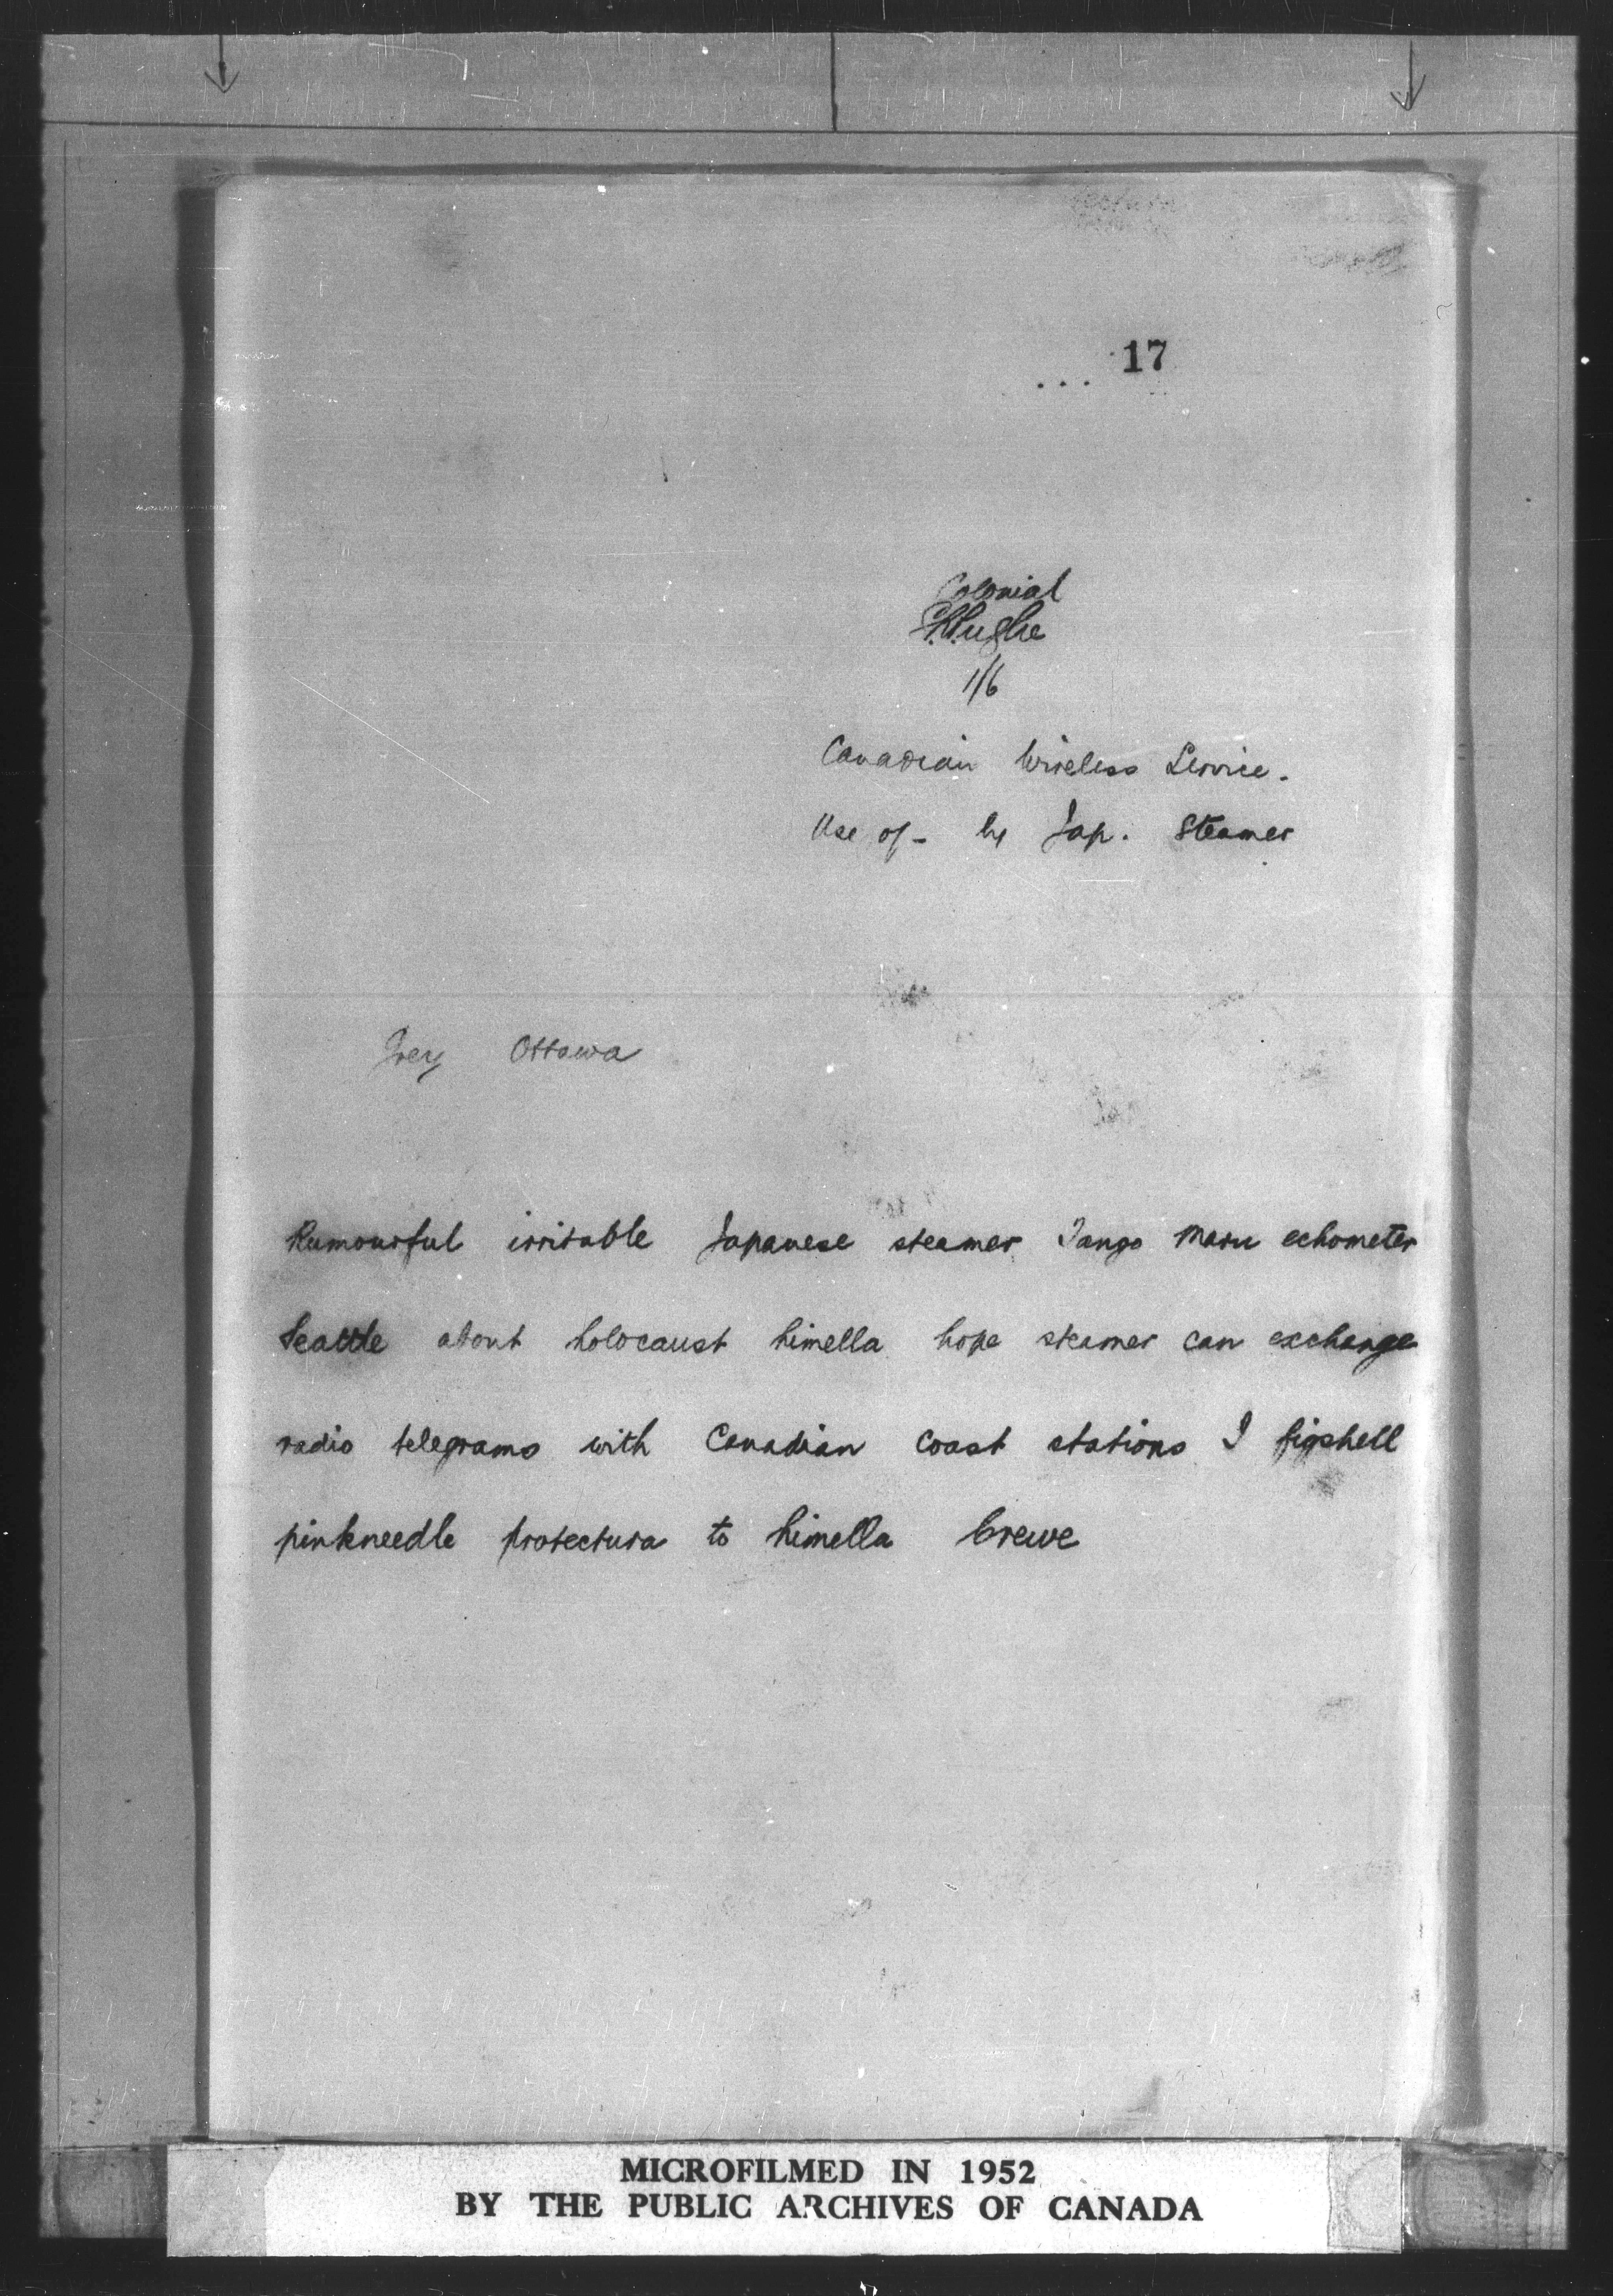 ... 17
Colonial
1/6
Canadian Wireless Service.
Use of - by Jap. Steamer
Grey Ottawa
Rumourful irritable Japanese steamer Tango Maru echometer
Seattle about holocaust himella hope steamer can exchange
radio telegrams with Canadian coast stations I figshell
pinkneedle protectura to himella Crewe
MICROFILMED IN 1952
BY THE PUBLIC ARCHIVES OF CANADA